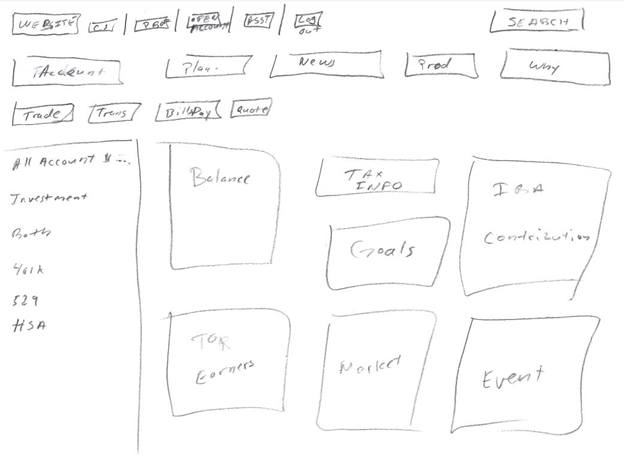 WEBSITE
OPEN
ACCOUNT
Log
out
SEARCH
Plan.
News
Prod
Why
Trade
Trans
BillPay
Quote
All Account $ ...
Investment
Both
401k
529
HSA
Balance
TAX
INFO
IRA
Contribution
Goals
TOP
Earners
Market
Event